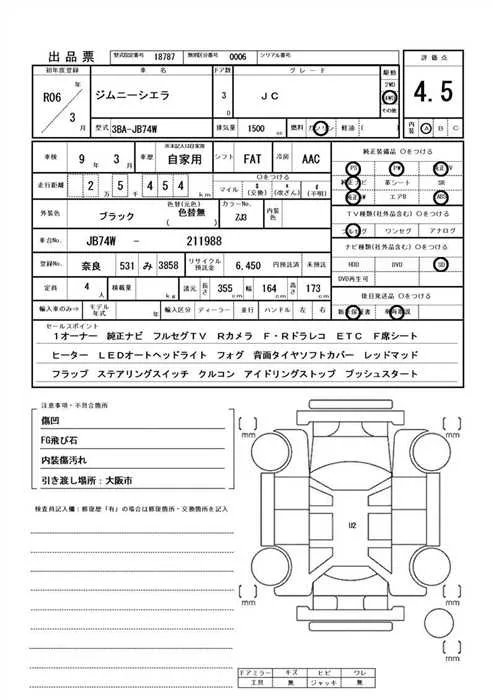 出品票 型式指定番号 18787 類別区分番号 0006 シリアル番号
初年度登録 R06 年 3 月
車名 ジムニーシエラ
ドア数 3 D
グレード JC
駆動 2WD 4WD その他
評価点 4.5
内装 A B C
型式 3BA-JB74W 排気量 1500 cc 燃料 ガソリン 軽油 ( )
車検 9 年 3 月 車歴 ※未記入は自家用 自家用 シフト FAT 冷房 AAC
走行距離 2 万 5 千 4 5 4 km ○をつける マイル $(交換) *(改ざん) #(不明)
外装色 ブラック 色替(元色) 色替無 ( ) カラーNo. ZJ3 内装色
車台No. JB74W - 211988
登録No. 奈良 531 み 3858 リサイクル預託金 6,450 円預託済 未預託
定員 4 人 積載量 kg 諸元 長さ 355 cm 幅 164 cm 高さ 173 cm
輸入車のみ⇒ モデル年式 年 輸入区分 ディーラー 並行 ハンドル 左 右
純正装備品 ○をつける
PS PW 純正TV
純正ナビ 革シート SR
純正AW エアB ABS
TV種類(社外品含む) ○をつける
フルセグ ワンセグ アナログ
ナビ種類(社外品含む) ○をつける
HDD DVD SD
DVD再生可
後日発送品 ○をつける
新車保証書 車両取説
セールスポイント
1オーナー 純正ナビ フルセグTV Rカメラ F・Rドラレコ ETC F席シート
ヒーター LEDオートヘッドライト フォグ 背面タイヤソフトカバー レッドマッド
フラップ ステアリングスイッチ クルコン アイドリングストップ プッシュスタート
注意事項・不具合箇所
傷凹
FG飛び石
内装傷汚れ
引き渡し場所:大阪市
検査員記入欄:修復歴「有」の場合は修復箇所・交換箇所を記入
[ ] mm
[ ] mm
U2
[ ] mm
[ ] mm
ドアミラー キズ ヒビ ワレ
工具 無 ジャッキ 無